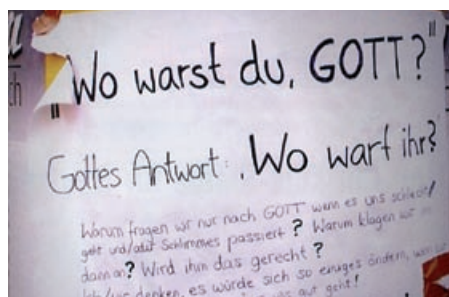 ch
"Wo warst du, GOTT?"
Gottes Antwort: Wo wart ihr?
Warum fragen wir nur nach GOTT wenn es uns schlecht
geht und/oder Schlimmes passiert? Warum klagen wir
dann an? Wird ihm das gerecht?
denken, es würde sich so einiges ändern, wenn
gut geht!